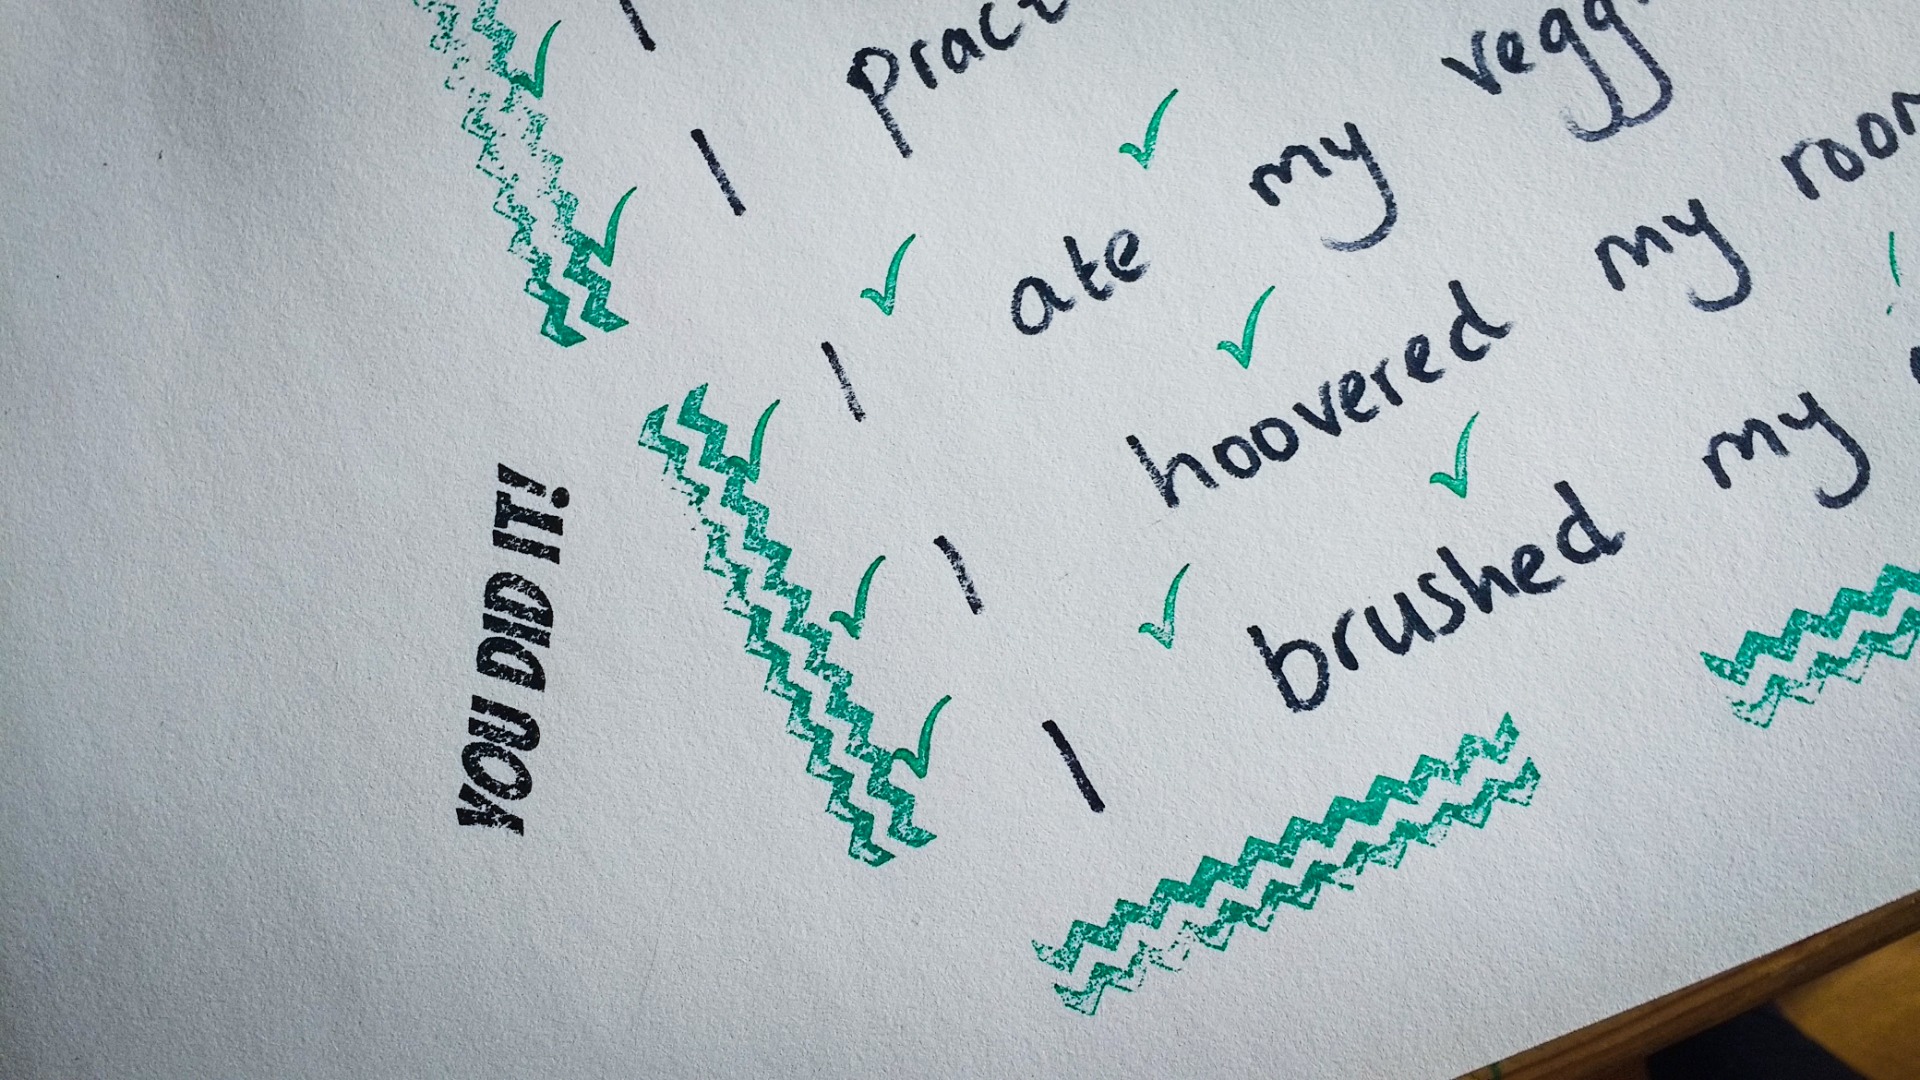 I
I prac
I ate my vegg
I hoovered my room
I brushed my
YOU DID IT!